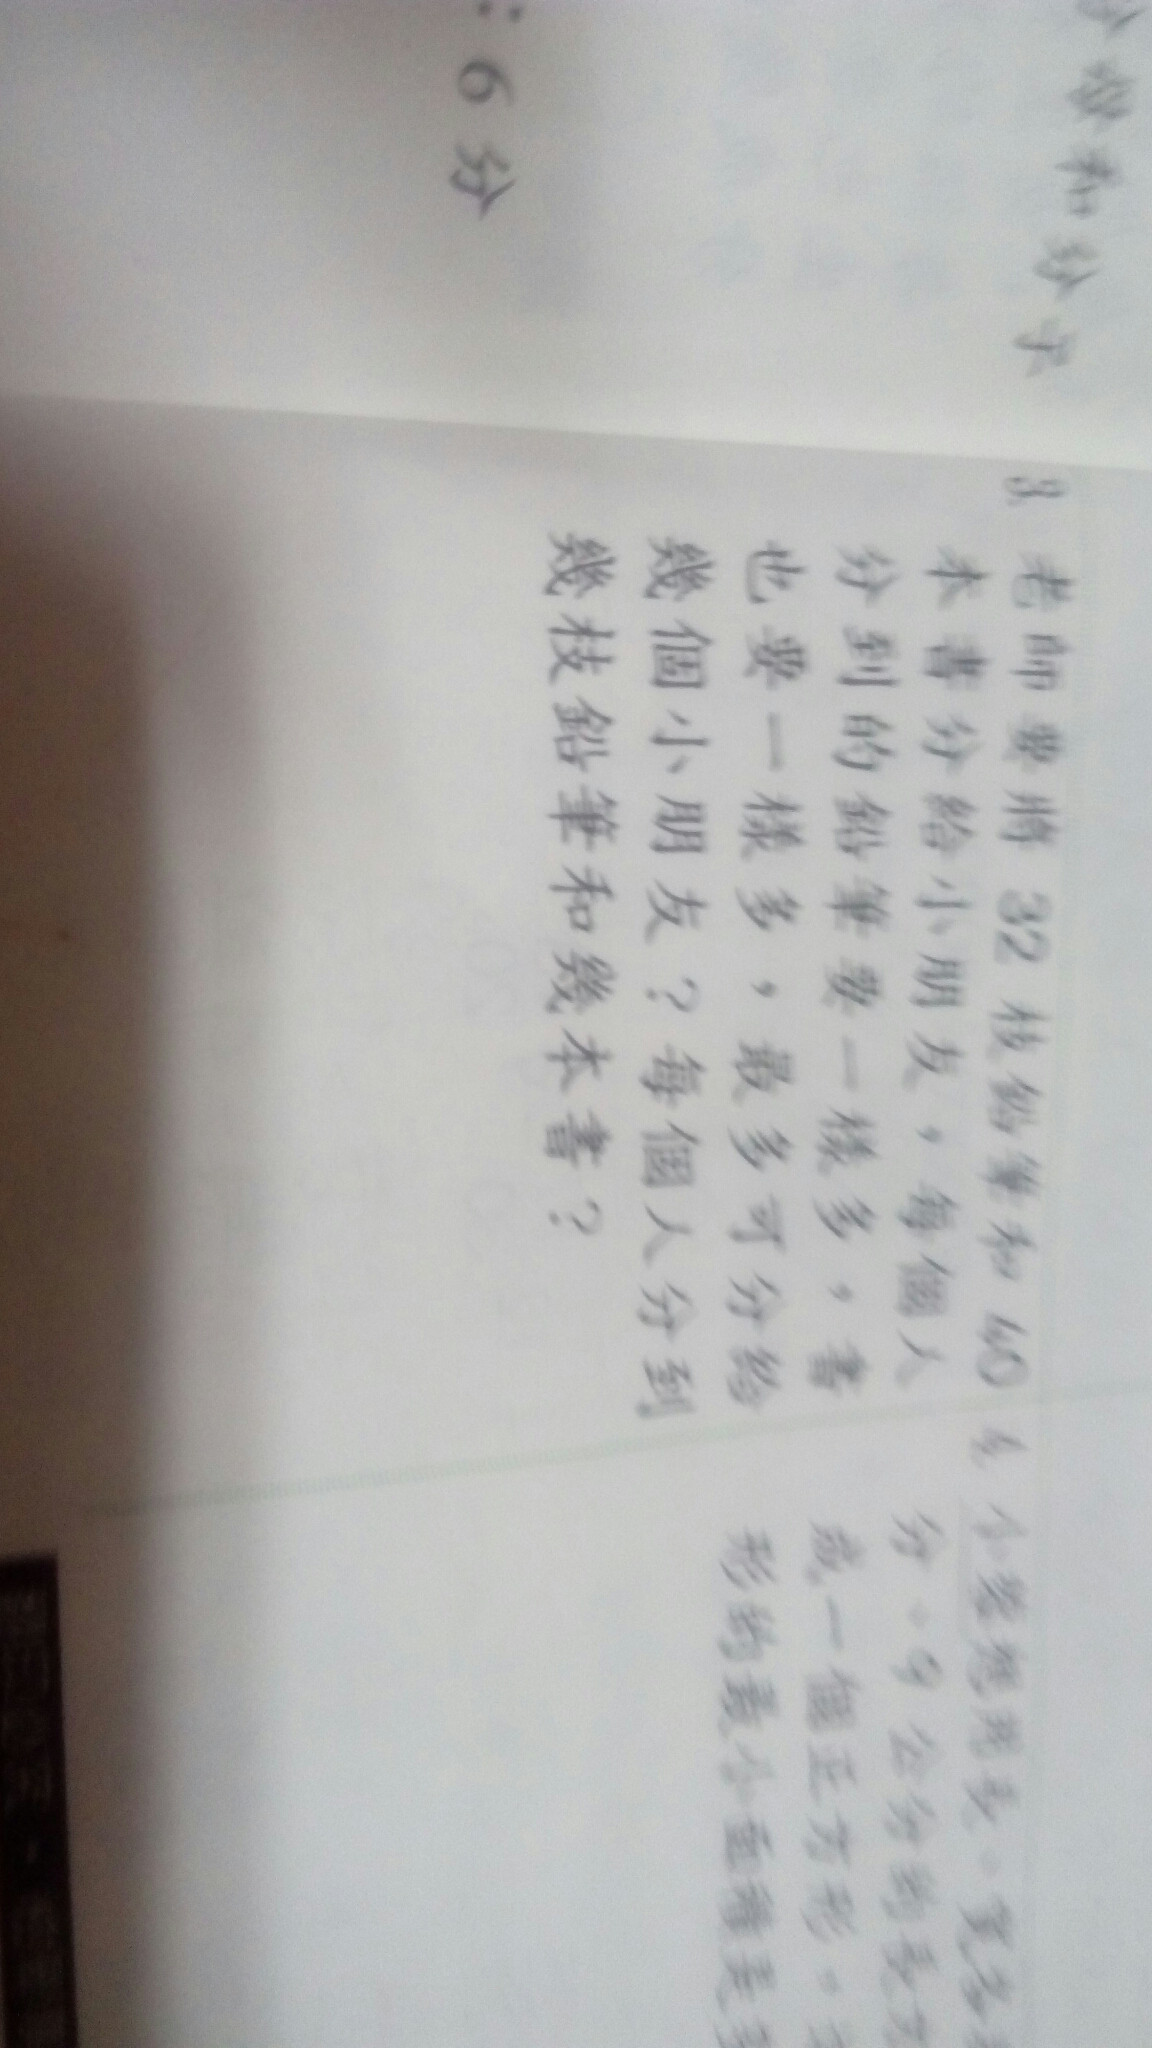 母和分子
：6分
3 老師要將 32 枝鉛筆和 40
本書分給小朋友，每個人
分到的鉛筆要一樣多，書
也要一樣多，最多可分給
幾個小朋友？每個人分到
幾枝鉛筆和幾本書？
分、9公分的長
成一個正方形，
形的最小面積是